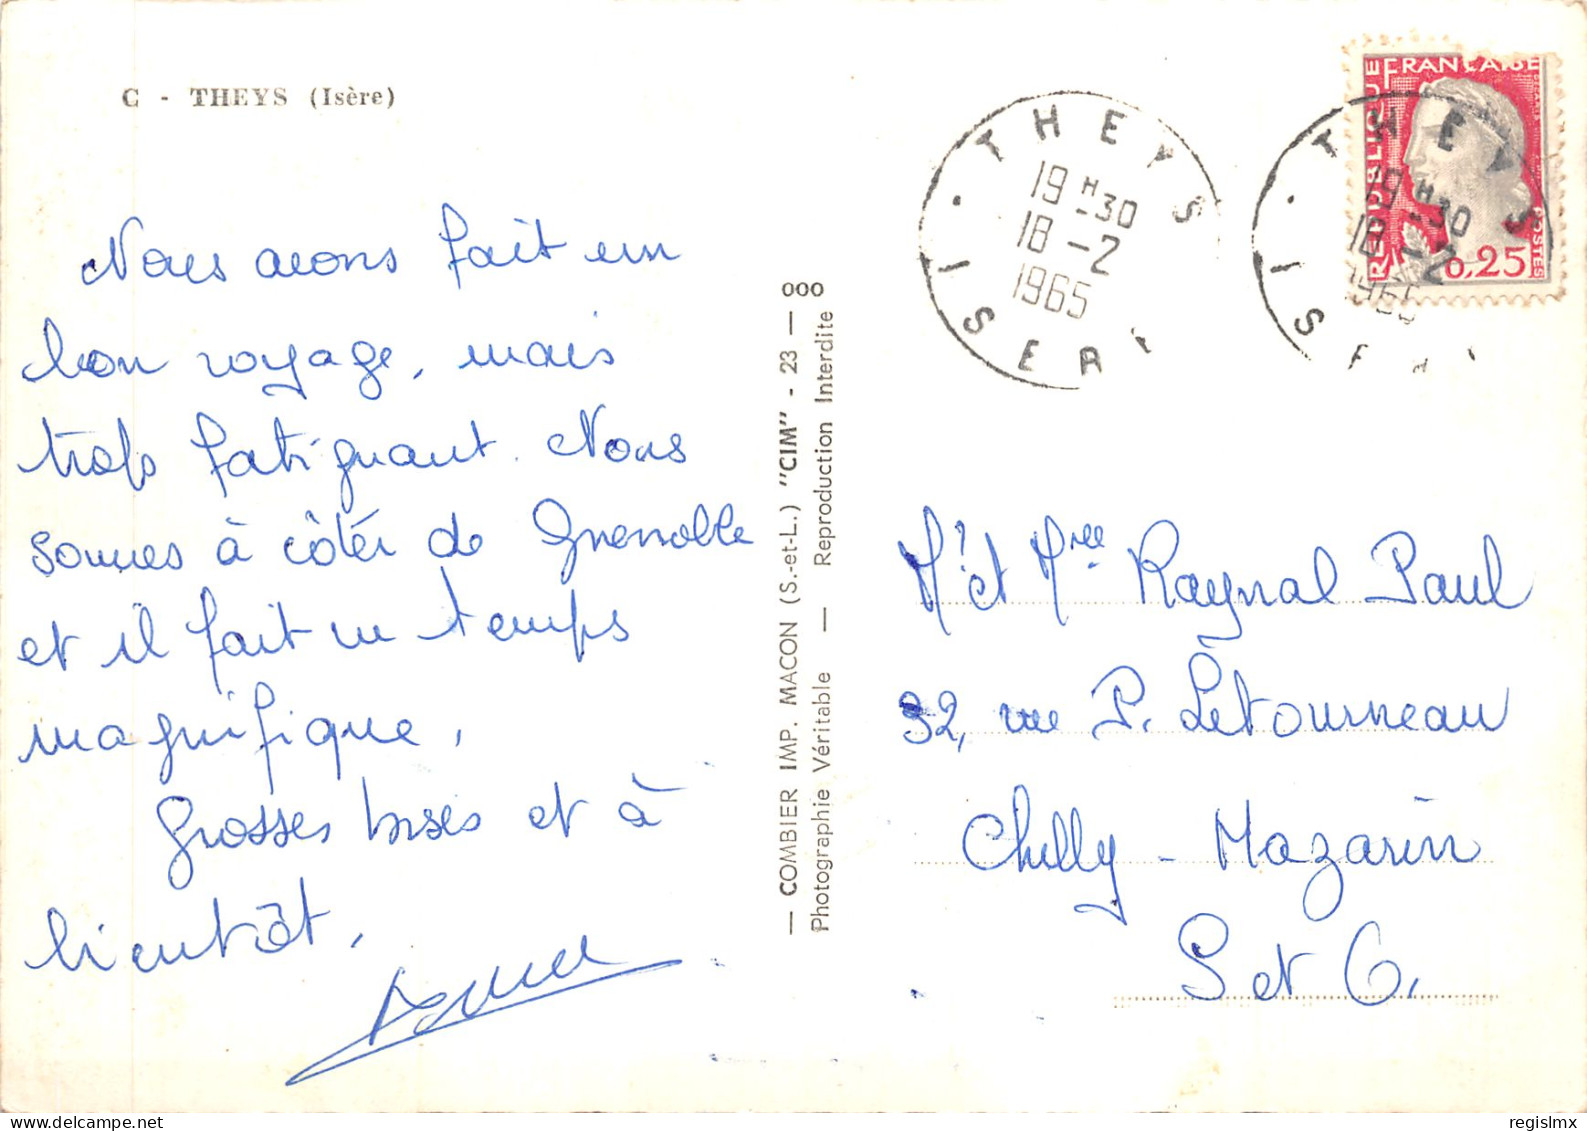 C - THEYS (Isère)
Nous avons fait un
bon voyage, mais
trop fatiguant. Nous
sommes à côtér de Grenoble
et il fait un temps
magnifique,
Grosses bises et à
bientôt,
— COMBIER IMP. MACON (S.-et-L.) "CIM" - 23 — 000
Photographie Véritable — Reproduction Interdite
THEYS
19 H 30
18 - 2
1965
ISERE
RÉPUBLIQUE FRANÇAISE
POSTES
0,25
THEYS
19 H 30
18 - 2
1965
ISERE
Mr et Mme Raynal Paul
32, rue P. Létourneau
Chilly - Mazarin
S et O,
regislmx